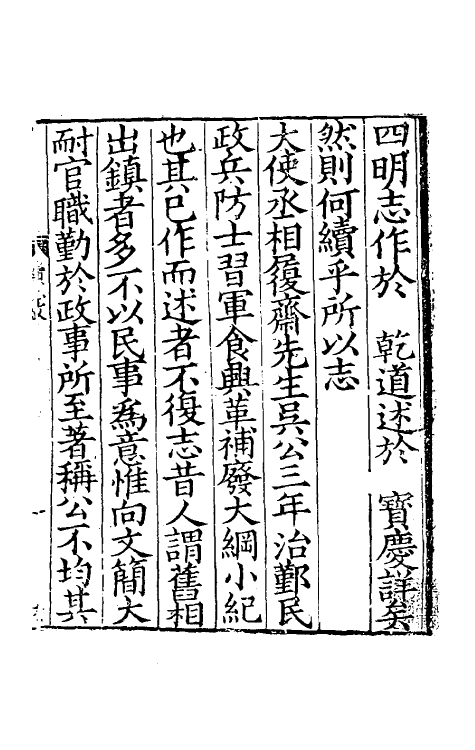 四明志作於　乾道述於　寶慶詳矣
然則何續乎所以志
大使丞相履齋先生吳公三年治鄞民
政兵防士習軍食興革補廢大綱小紀
也其已作而述者不復志昔人謂舊相
出鎮者多不以民事為意惟向文簡大
耐官職勤於政事所至著稱公不均其